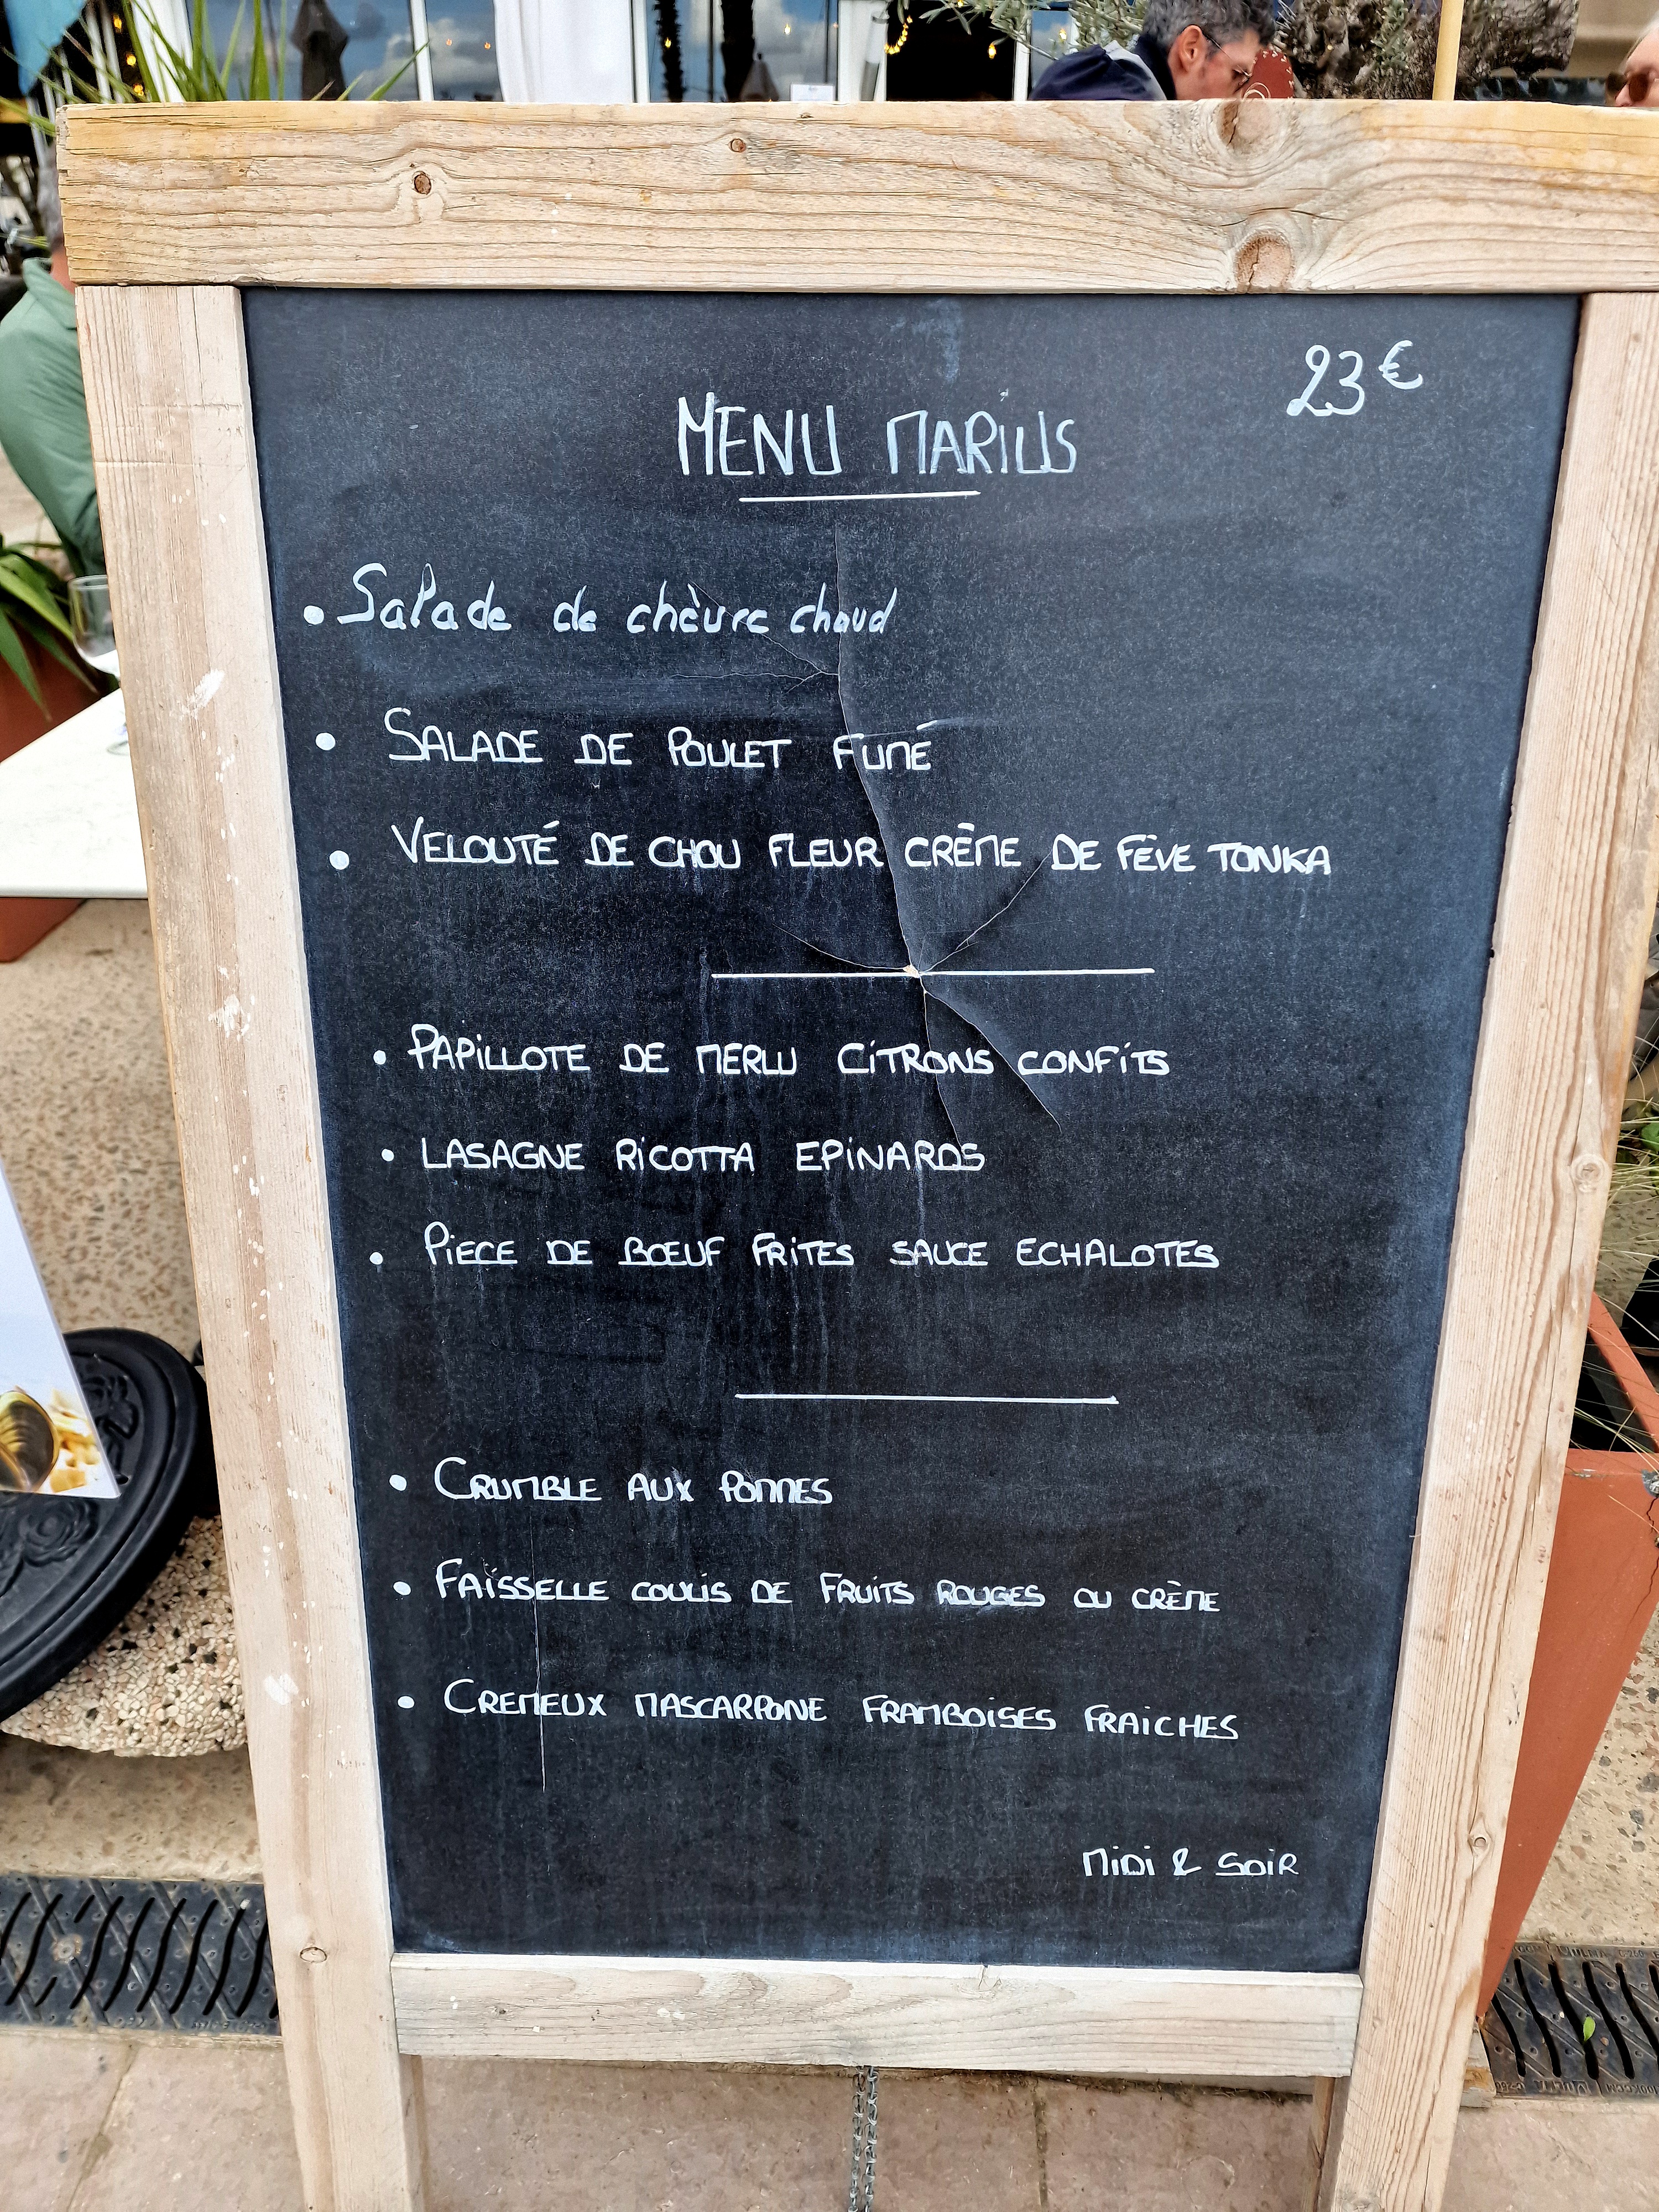 23€
MENU MARIUS
• Salade de chèvre chaud
• SALADE DE POULET FUMÉ
• VELOUTÉ DE CHOU FLEUR CRÈME DE FÈVE TONKA
• PAPILLOTE DE MERLU CITRONS CONFITS
• LASAGNE RICOTTA EPINARDS
• PIECE DE BŒUF FRITES SAUCE ECHALOTES
• CRUMBLE AUX POMMES
• FAISSELLE COULIS DE FRUITS ROUGES OU CRÈME
• CREMEUX MASCARPONE FRAMBOISES FRAICHES
MIDI & SOIR